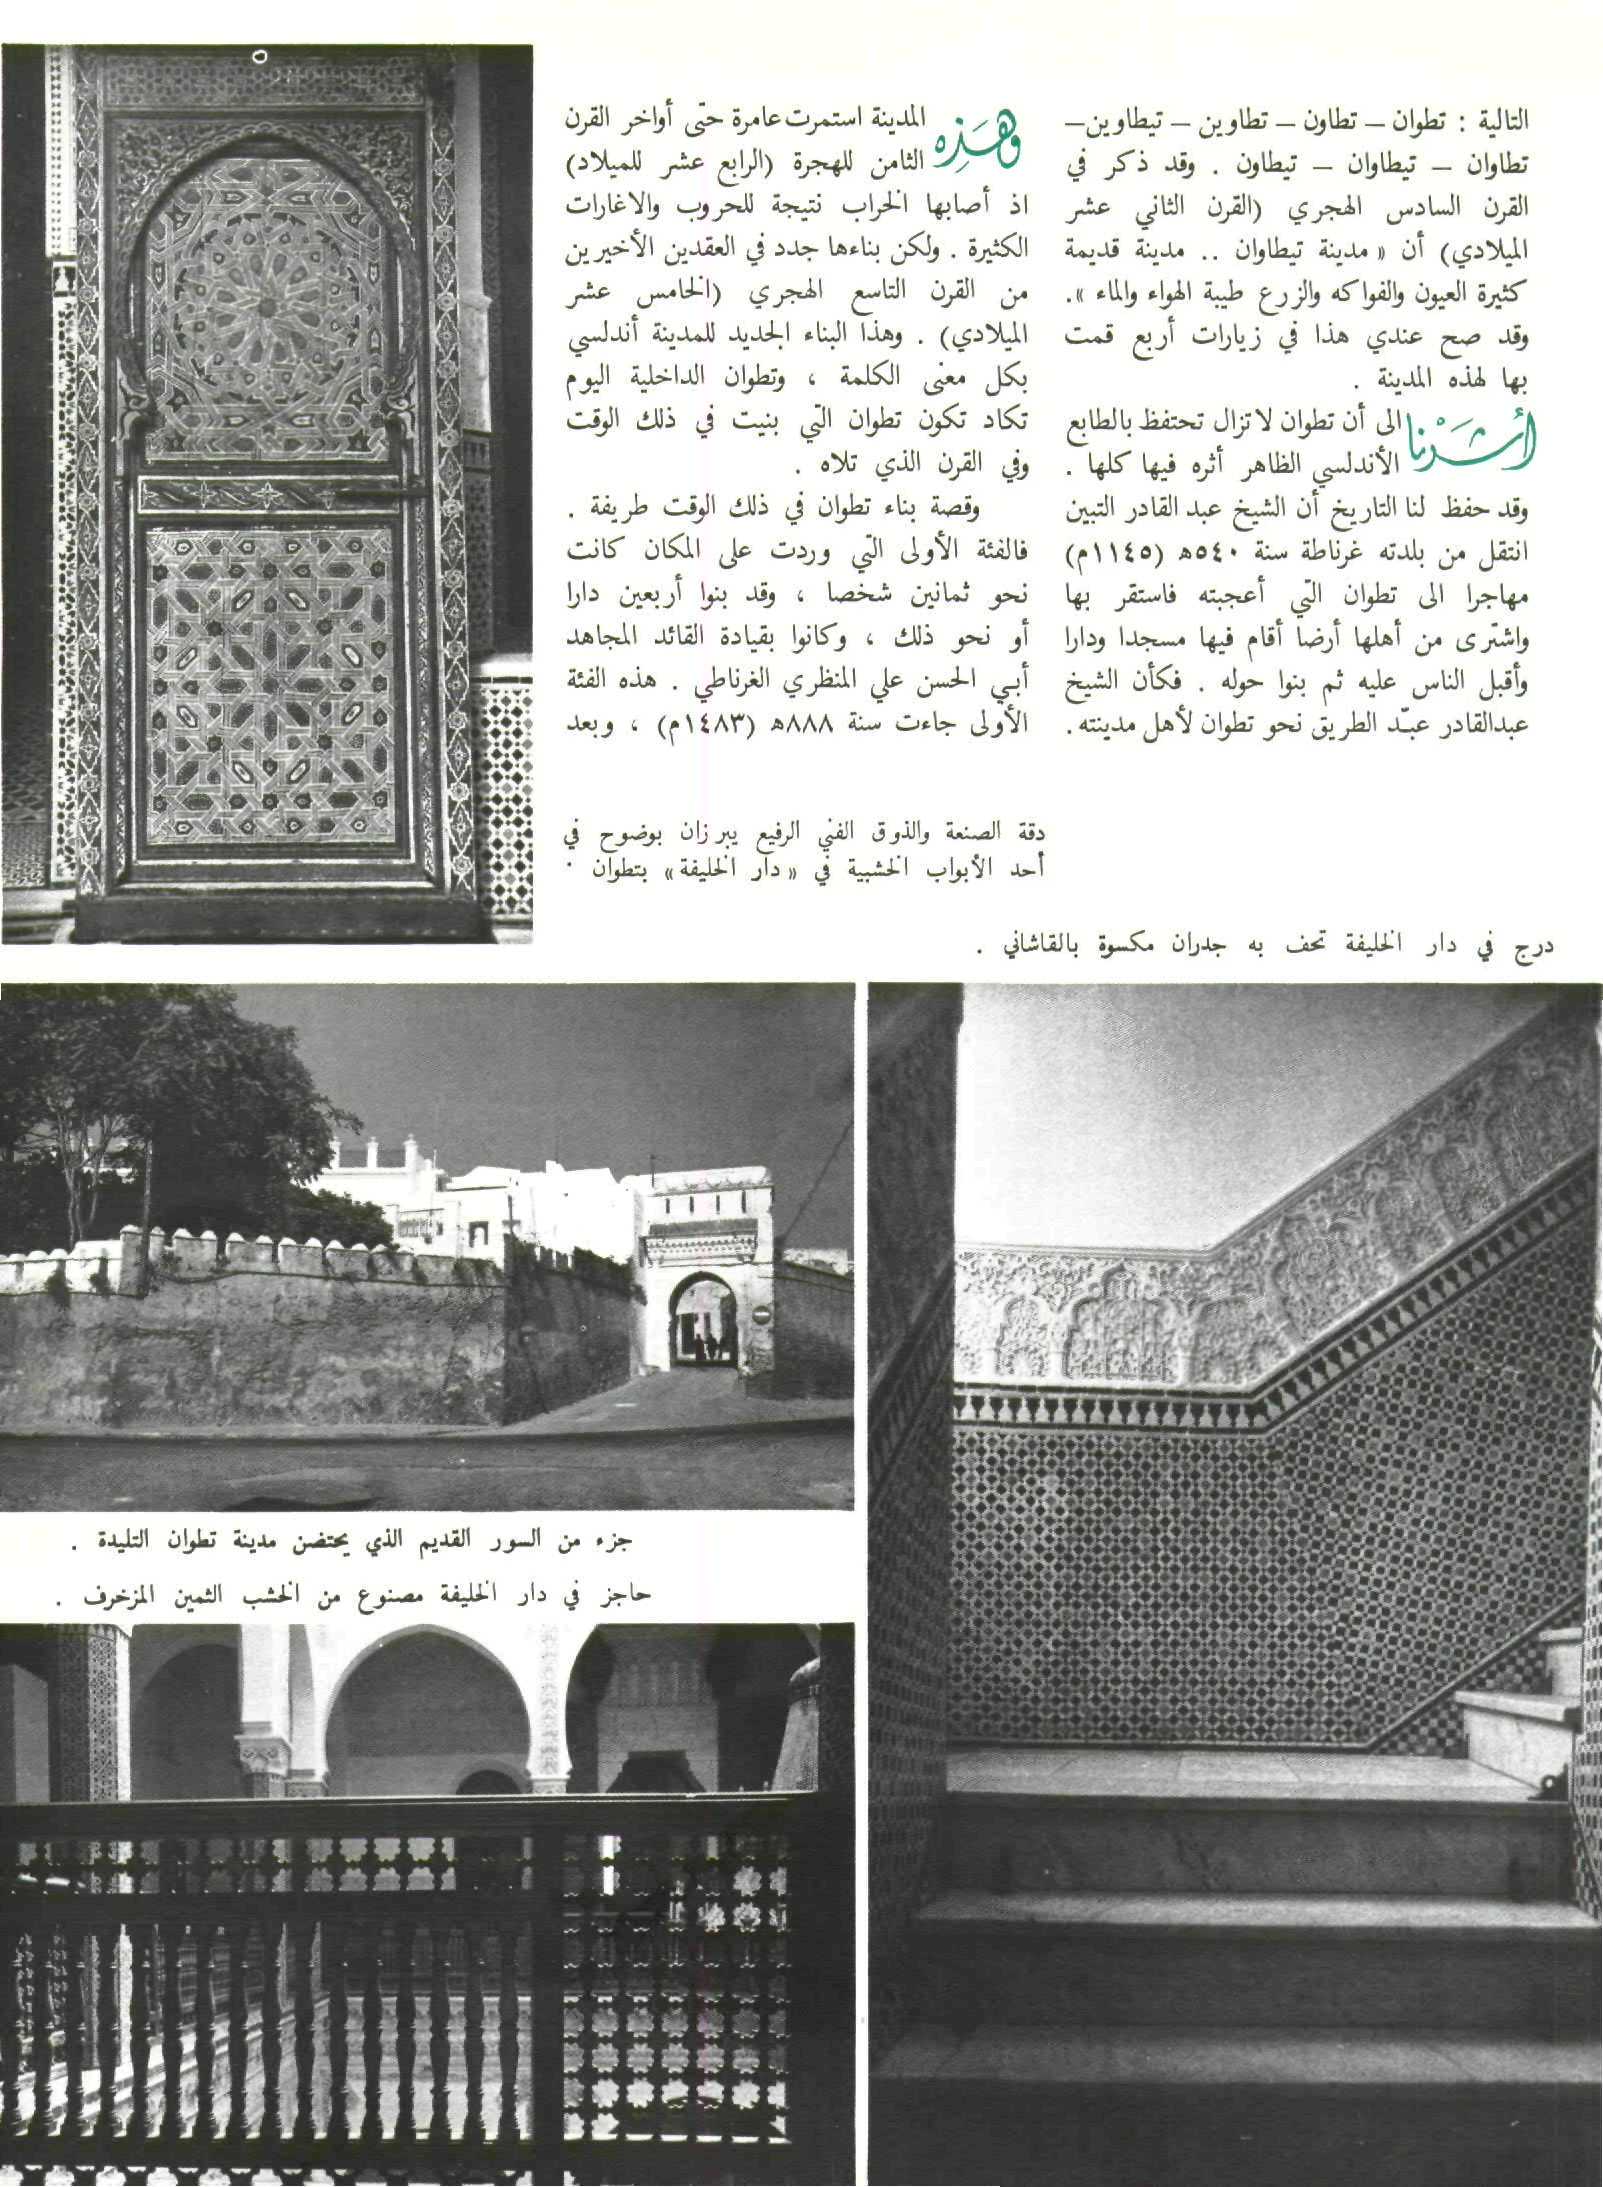 التالية : تطوان — تطاون — تطاوين — تيطاوين —
تطاوان — تيطاوان — تيطاون . وقد ذكر في
القرن السادس الهجري (القرن الثاني عشر
الميلادي) أن « مدينة تيطاوان .. مدينة قديمة
كثيرة العيون والفواكه والزرع طيبة الهواء والماء ».
وقد صح عندي هذا في زيارات أربع قمت
بها لهذه المدينة .
أشرنا الى أن تطوان لا تزال تحتفظ بالطابع
الأندلسي الظاهر أثره فيها كلها .
وقد حفظ لنا التاريخ أن الشيخ عبد القادر التبين
انتقل من بلدته غرناطة سنة ٥٤٠ه (١١٤٥م)
مهاجرا الى تطوان التي أعجبته فاستقر بها
واشترى من أهلها أرضا أقام فيها مسجدا ودارا
وأقبل الناس عليه ثم بنوا حوله . فكأن الشيخ
عبدالقادر عبّد الطريق نحو تطوان لأهل مدينته.
وَهَذِه المدينة استمرت عامرة حتى أواخر القرن
الثامن للهجرة (الرابع عشر للميلاد)
اذ أصابها الخراب نتيجة للحروب والاغارات
الكثيرة . ولكن بناءها جدد في العقدين الأخيرين
من القرن التاسع الهجري (الخامس عشر
الميلادي) . وهذا البناء الجديد للمدينة أندلسي
بكل معنى الكلمة ، وتطوان الداخلية اليوم
تكاد تكون تطوان التي بنيت في ذلك الوقت
وفي القرن الذي تلاه .
وقصة بناء تطوان في ذلك الوقت طريفة .
فالفئة الأولى التي وردت على المكان كانت
نحو ثمانين شخصا ، وقد بنوا أربعين دارا
أو نحو ذلك ، وكانوا بقيادة القائد المجاهد
أبي الحسن علي المنظري الغرناطي . هذه الفئة
الأولى جاءت سنة ٨٨٨ه (١٤٨٣م) ، وبعد
دقة الصنعة والذوق الفني الرفيع يبرزان بوضوح في
أحد الأبواب الخشبية في « دار الخليفة » بتطوان .
درج في دار الخليفة تحف به جدران مكسوة بالقاشاني .
جزء من السور القديم الذي يحتضن مدينة تطوان التليدة .
حاجز في دار الخليفة مصنوع من الخشب الثمين المزخرف .